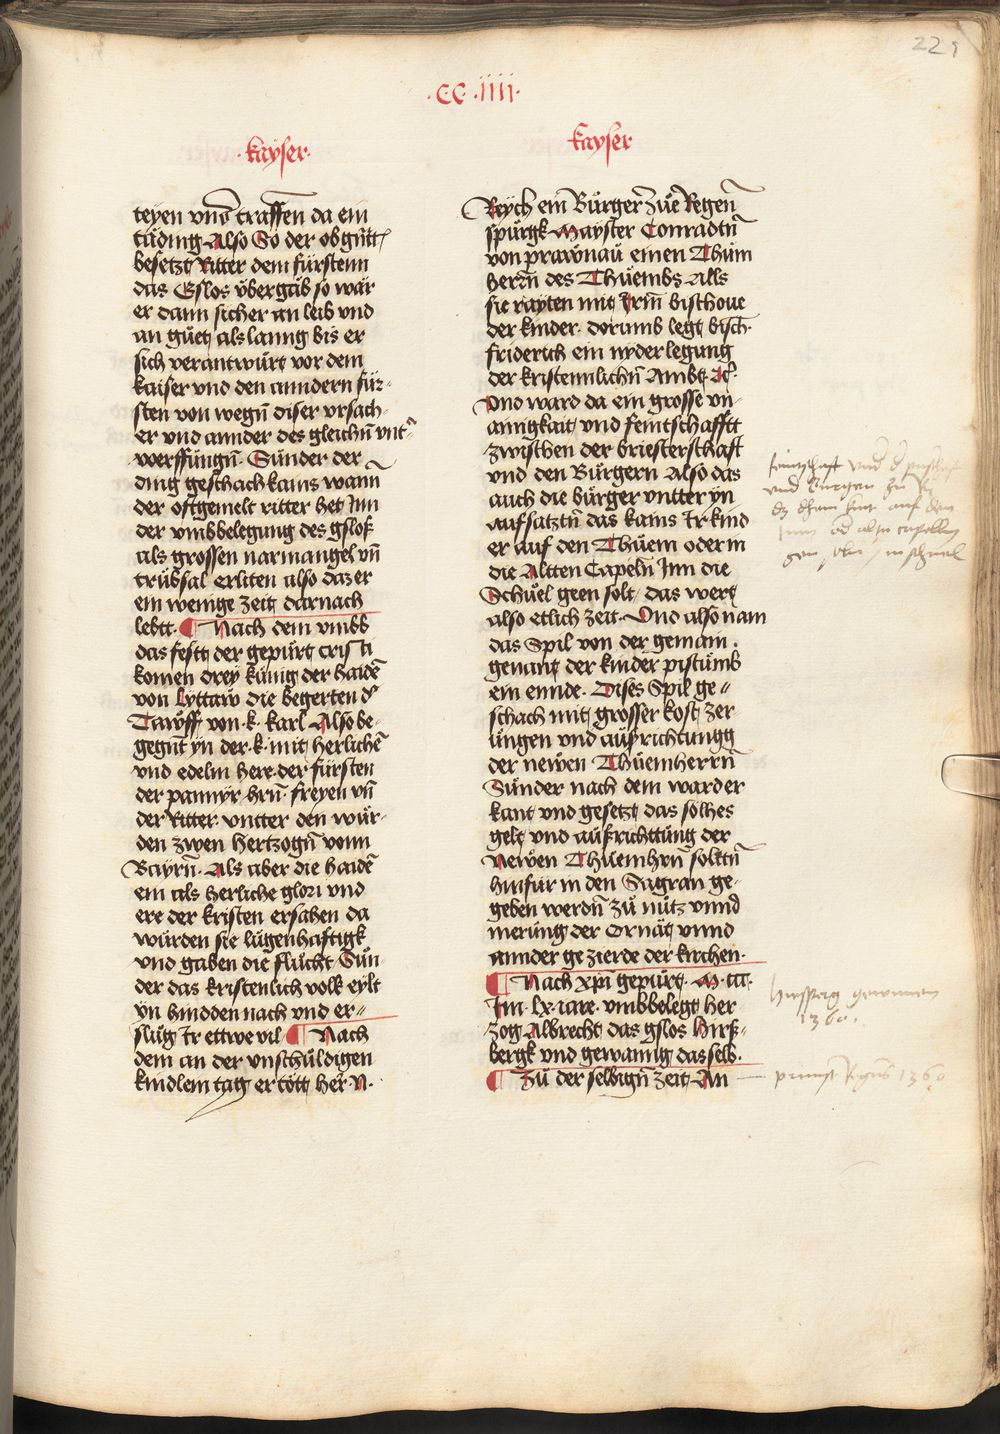 221
·CC·iiii·
·kayser·
kayser
teyen vnd traffen da ein
täding Also So der obgntt
besetzt Ritter dem fürstenn
das Gslos vbergäb so wär
er dann sicher an leib vnd
an güet als lanng bis er
sich verantwürt vor dem
kaiser vnd den anndern für-
sten von wegn̄ diser vrsach-
er vnd annder des gleichn̄ vnt̄
werffüngn̄. Sünder der
ding geschach kains wann̄
der oftgemelt ritter het Jnn
der vmbbelegung des gsloß
als grossen narmangel vn̄
trübsal erliten also daz er
ein wenige zeit darnach
lebtt. Nach dem vmbb
das festt der gepürt cristi
komen drey künig der haidē
von Lyttaw die begerten d̄
Tawff von k. karl Also be-
gegnt yn der k. mit herlichē
vnd edelm here der fürsten
der pannyr hrn̄ freyen vn̄
der Ritter vntter den wür-
den zwen hertzogn̄ vonn
Bayrn̄. Als aber die haidē
ein als herliche glori vnd
ere der kristen ersahen da
würden sie lügenhaftigk
vnd gaben die flücht Sün
der das kristenlich volk eylt
yn hindden nach vnd er-
slüg Jr ettwe vil Nach
dem an der vnschüldigen
kindlem tag ertött her N.
Reych ein Bürger zue Regen
spürgk Mayster Conradtn̄
von prawnaw einen Thüm
herrn̄ des Thüembs Alls
sie rayten mit Jrm̄ bischoue
der kinder. dorumb legt bisch.
friderich ein nyderlegung
der kristennlichn̄ Ambt etc.
Vnd ward da ein grosse vn-
ainigkait vnd feintschafftt
zwischen der briesterschaft
vnd den Bürgern Also das
auch die bürger vntter yn
aufsatztn̄ das kains Jr kind
er auf den Thüem oder in
die Altten Capeln̄ Jnn die
Schuel geen solt, das wert
also etlich zeit. Vnd also nam
das Spil von der gemain.
genant der kinder pistümb
ein ennde. Dises Spil ge-
schach mit grosser kost zer
üngen vnd aüfrichtungg
der newen Thüemherrn̄
Sünder nach dem ward er
kant vnd gesetzt das solhes
gelt vnd aüfrichttüng der
Newen Thüemhrn̄ solttn̄
hinfür in den Sagran ge-
geben werdn̄ zü nütz vnnd
merüng der Ornät vnnd
annder gezierde der kirchen.
Nach xpi gepürt. M. ccc.
Jm. lx. iare. vmbbelegt her
zog Albrecht das gslos hirß-
bergk vnd gewanng dasselb.
Zü der selbign̄ zeit An
vnd
auf dem
gewunnen
1360.
1360